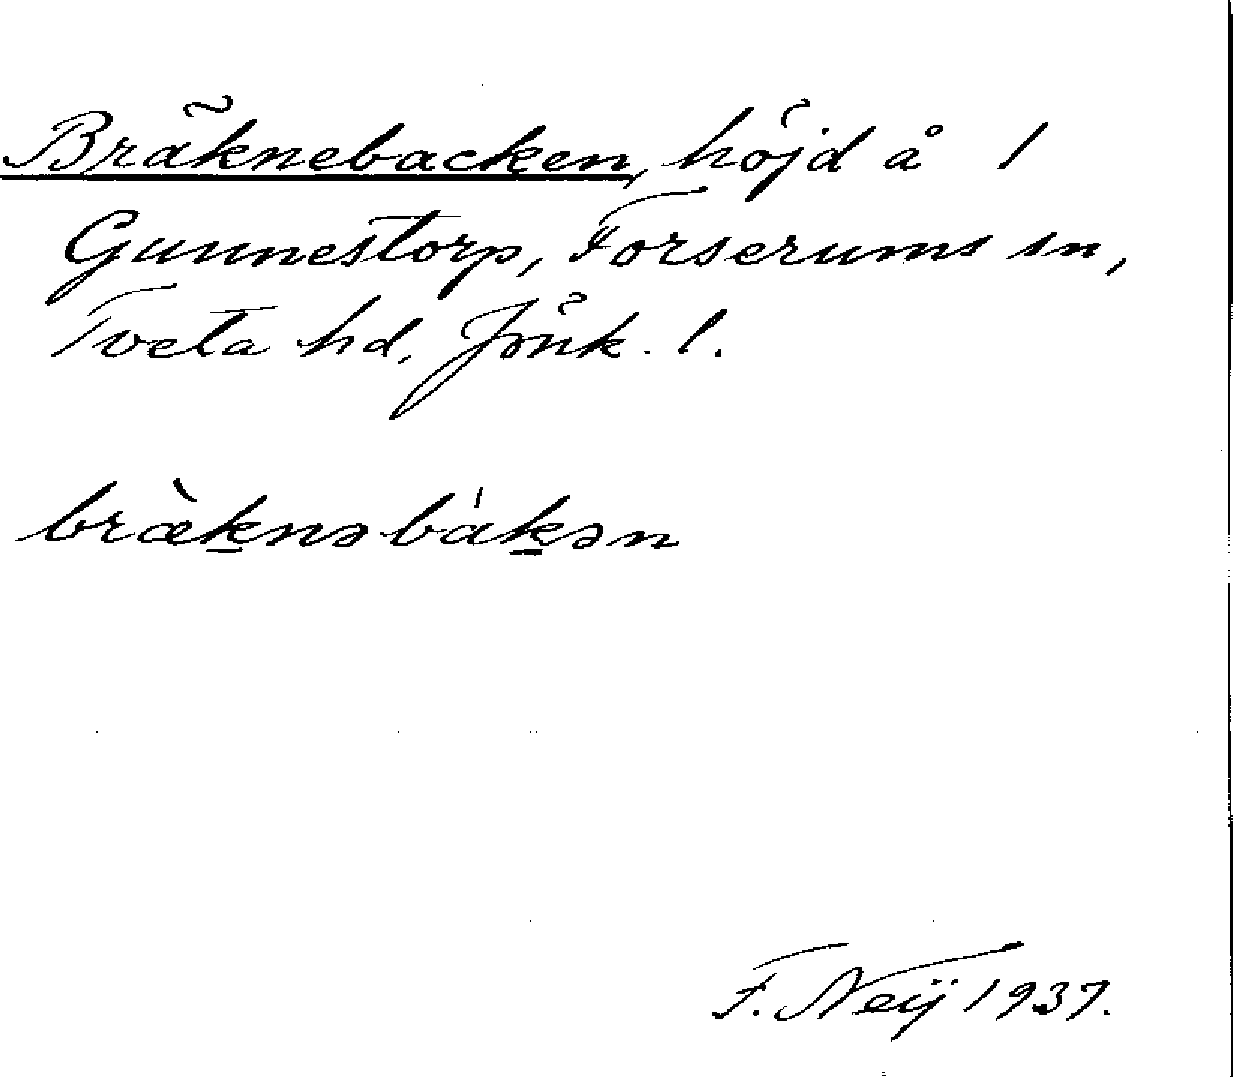 Bräknebacken, höjd å 1
Gunnestorp, Forserums sn,
Tveta hd, Jönk. l.
bræ̀knəbákən
F. Neij 1937.